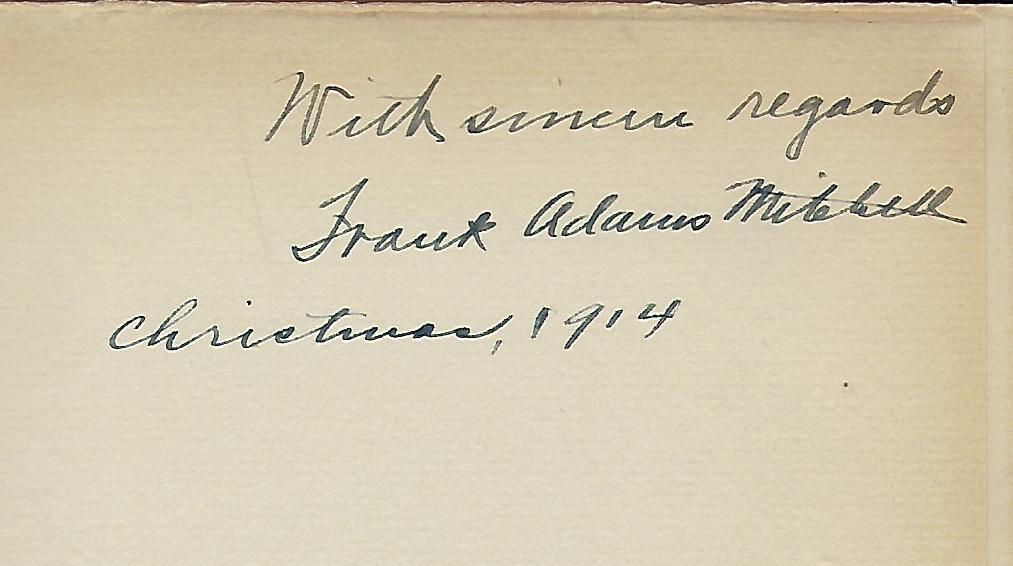 With sincere regards
Frank Adams Mitchell
Christmas, 1914